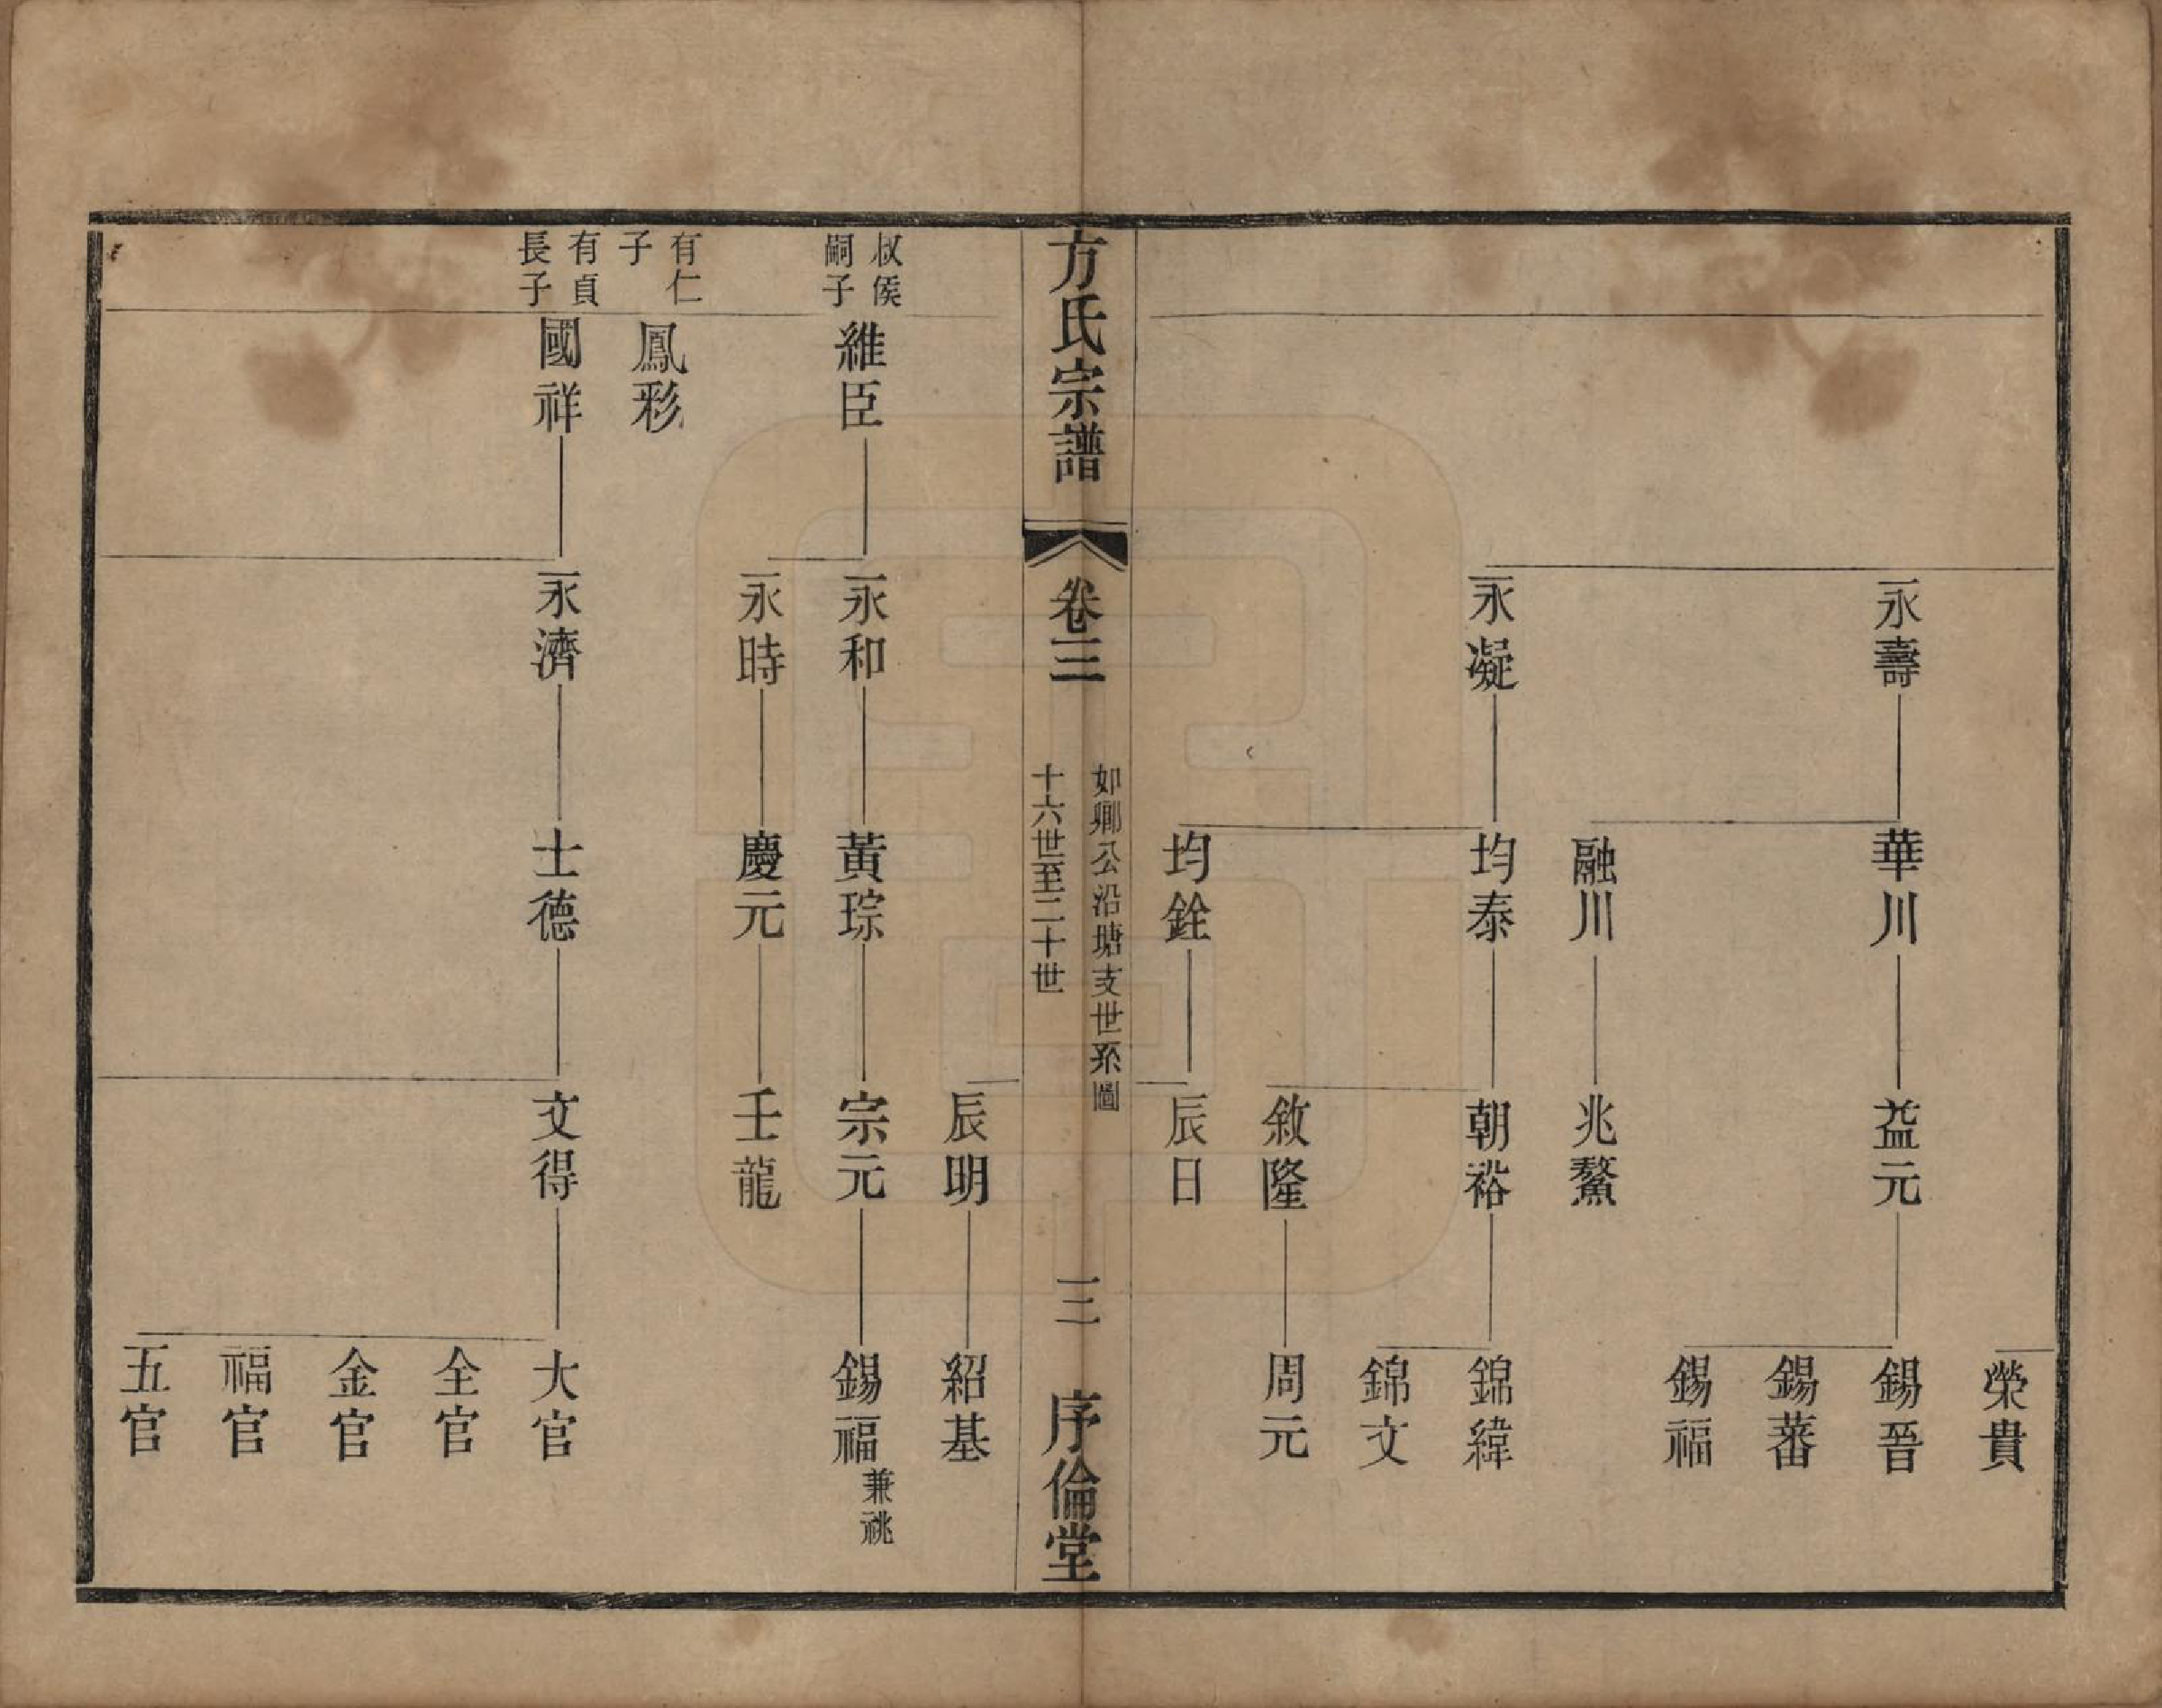 榮貴
永壽
華川
益元
錫晉
錫蕃
錫福
融川
兆鰲
永凝
均泰
朝裕
錦緯
錦文
敘隆
周元
均銓
辰日
方氏宗譜
卷三
如卿公沿塘支世系圖
十六世至二十世
三
序倫堂
辰明
紹基
叔侯
嗣子
維臣
永和
黃琮
宗元
錫福
兼祧
永時
慶元
壬龍
有仁
子
鳳彩
有貞
長子
國祥
永濟
士德
文得
大官
全官
金官
福官
五官